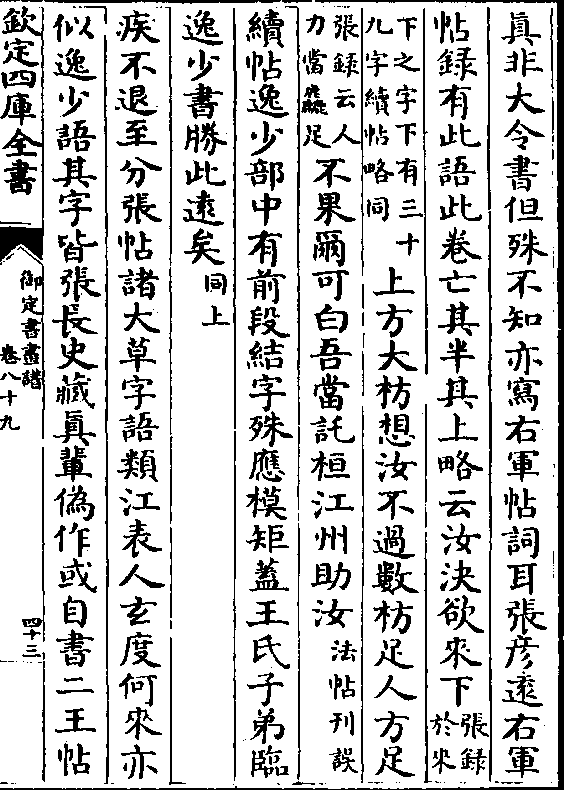 眞非大令書但殊不知亦寫右軍帖詞耳張彦逺右軍
帖録有此語此卷亡其半其上略云汝決欲來下張録於來
下之字下有三十九字續帖略同上方大枋想汝不過數枋足人方足
張録云人力當足不果爾可白吾當託桓江州助汝法帖刊誤
續帖逸少部中有前段結字殊應模矩蓋王氏子弟臨
逸少書勝此逺矣同上
疾不退至分張帖諸大草字語類江表人玄度何來亦
似逸少語其字皆張長史藏眞輩偽作或自書二王帖
欽定四庫全書
御定書畫譜
卷八十九
四十三